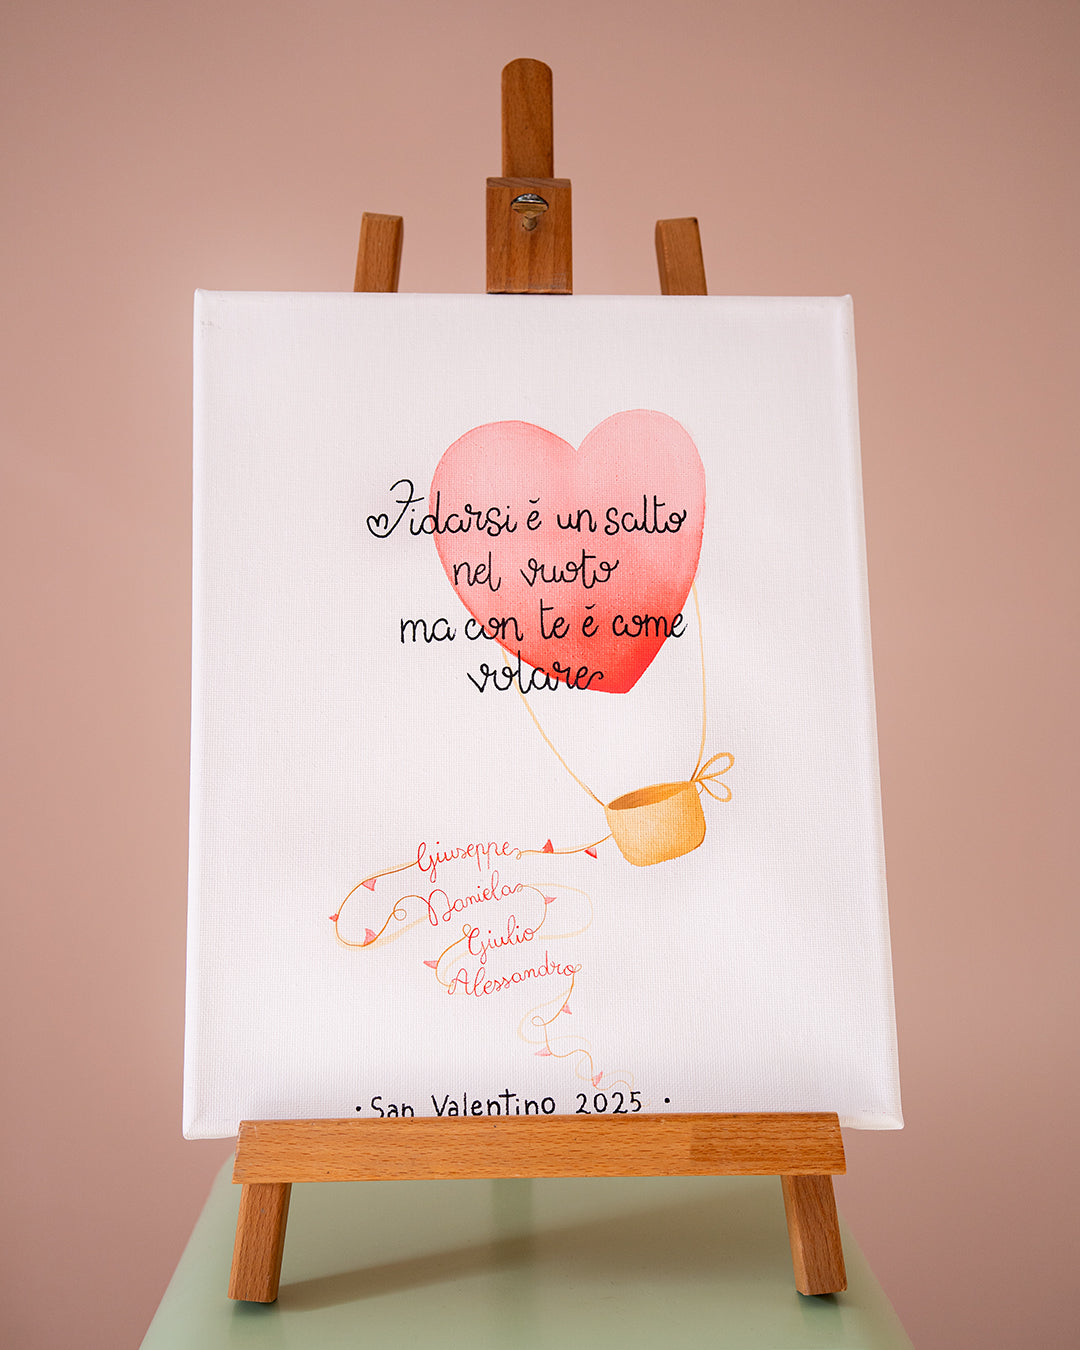 Fidarsi è un salto
nel vuoto
ma con te è come
volare
Giuseppe
Daniela
Giulio
Alessandro
• San Valentino 2025 •